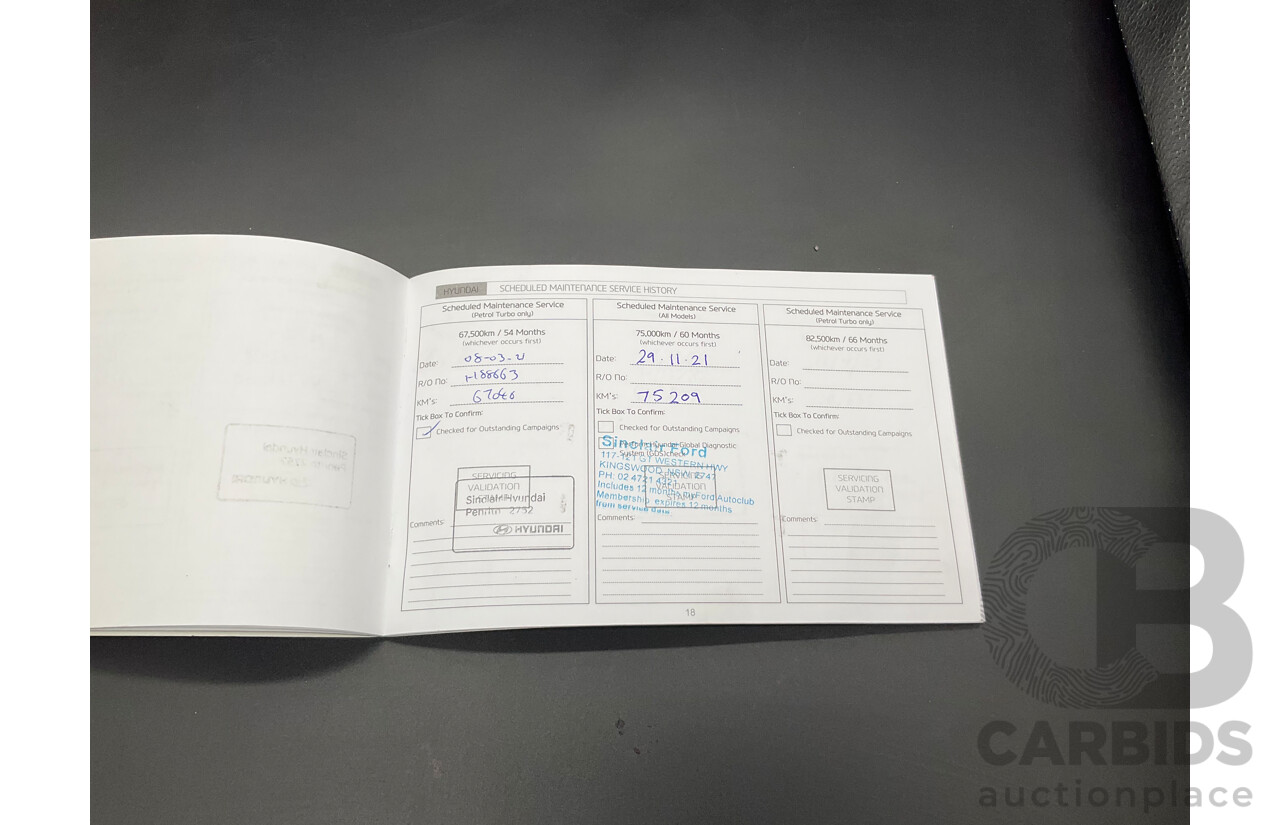 HYUNDAI SCHEDULED MAINTENANCE SERVICE HISTORY
Scheduled Maintenance Service
(Petrol Turbo only)
67,500km / 54 Months
(whichever occurs first)
Date: 08-03-21
R/O No:
KM's:
Tick Box To Confirm:
Checked for Outstanding Campaigns
SERVICING
VALIDATION
Sinclair Hyundai
Penrith 2752
HYUNDAI
Comments:
Scheduled Maintenance Service
(All Models)
75,000km / 60 Months
(whichever occurs first)
Date: 29.11.21
R/O No:
KM's: 75209
Tick Box To Confirm:
Checked for Outstanding Campaigns
Global Diagnostic
System (GDS) check
Sinclair Ford
WESTERN HWY
KINGSWOOD NSW 2747
PH: 02 4721 4321
Includes 12 months myFord Autoclub
Membership expires 12 months
from service date
VALIDATION
STAMP
Comments:
Scheduled Maintenance Service
(Petrol Turbo only)
82,500km / 66 Months
(whichever occurs first)
Date:
R/O No:
KM's:
Tick Box To Confirm:
Checked for Outstanding Campaigns
SERVICING
VALIDATION
STAMP
Comments:
18
CB
CARBIDS
auctionplace